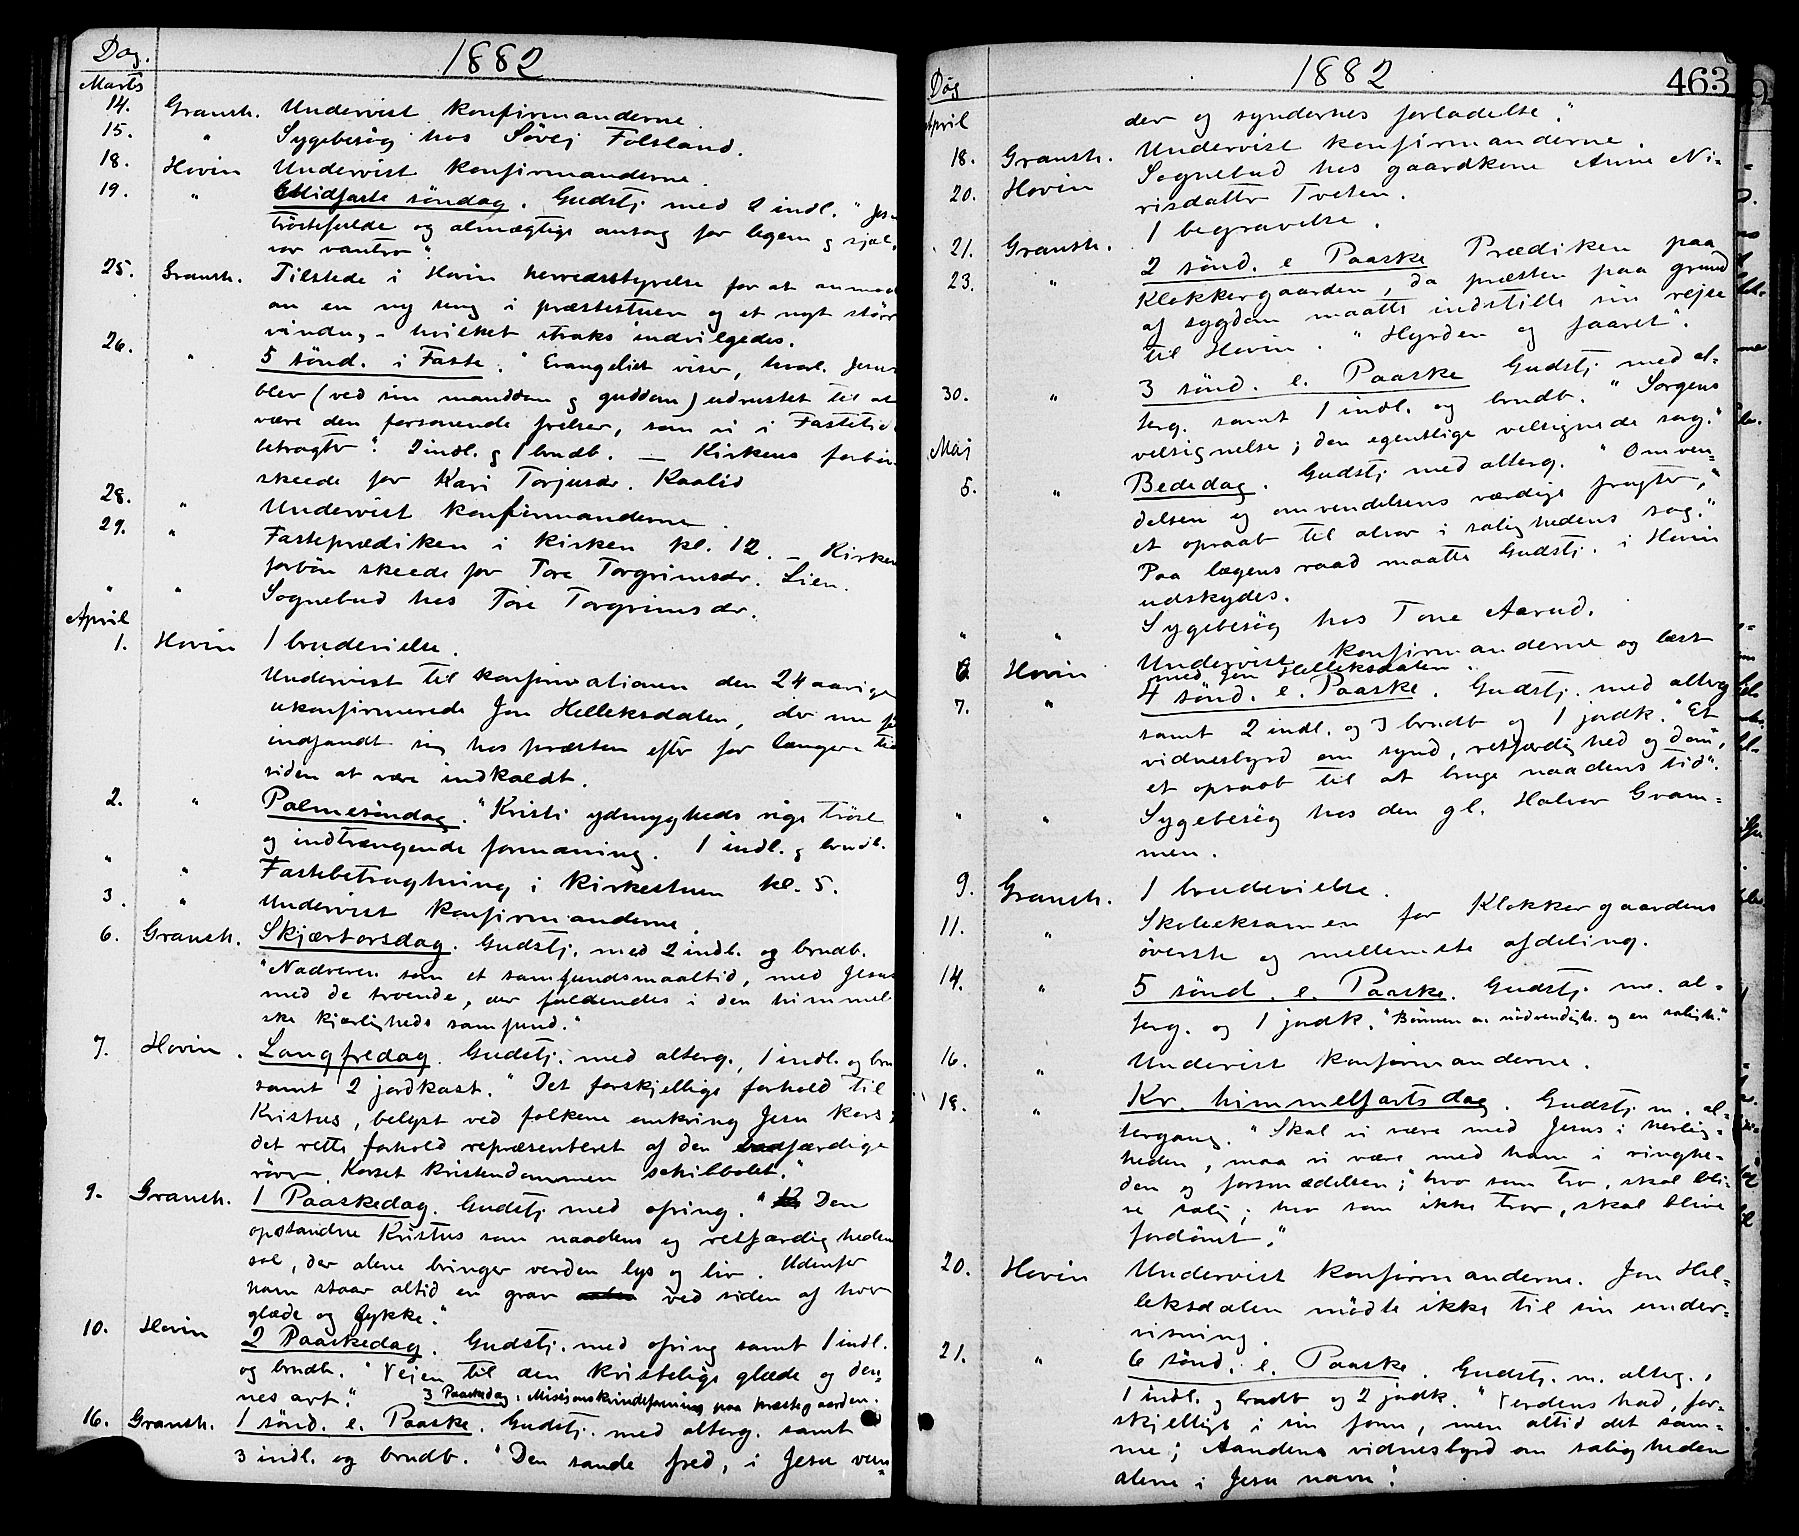 Dag.
1882
Marts
14. Gransh. Undervist konfirmanderne.
15. " Sygebesøg hos Søvei Folsland.
18. Hovin Undervist konfirmanderne.
19. " Midfaste søndag. Gudstj. med 2 indl. "Jesu
trøstefulde og almægtige ansog for legem og sjæl,
vor vantro".
25. Gransh. Tilstede i Hovin herredsstyrelse for at anmod
om en ny seng i præstestuen og et nyt størr
vindu, - hvilket straks indvilgedes.
26. " 5 sønd. i Faste. "Evangeliet viser, hvorl. Jesus
blev (ved sin manddom og guddom) udrustet til at
være den forsonende frelser, som vi i Fastetid
betragter". 2 indl. og 1 brudb. — Kirkens forbøn
skeede for Kari Torjusdr. Kaalid
28. " Undervist konfirmanderne.
29. " Fasteprædiken i kirken kl. 12. — Kirken
forbøn skeede for Tore Torgrimsdr. Lien.
" " Sognebud hos Tore Torgrimsdr.
April
1. Hovin 1 brudevielse.
Undervist til konfirmationen den 24 aarige
ukonfirmerede Jon Helleksdalen, der nu
indfandt sig hos præsten efter for længere tid
siden at være indkaldt.
2. " Palmesøndag. "Kristi ydmygheds rige trøst
og indtrængende formaning. 1 indl. og brudb.
" " Fastebetragtning i kirkestuen kl. 5.
3. " Undervist konfirmanderne.
6. Gransh. Skjærtorsdag. Gudstj. med 2 indl. og brudb.
"Nadveren som et samfundsmaaltid, med Jesus
med de troende, der fuldendes i den himmel
ske kjærligheds samfund."
7. Hovin. Langfredag. Gudstj. med alterg., 1 indl. og bru
samt 2 jordkast. "Det forskjellige forhold til
Kristus, belyst ved folkene omkring Jesu kors;
det rette forhold repræsenteret af den bodfærdige
røver. Korset kristendommen schibbolet."
9. Gransh. 1 Paaskedag. Gudstj. med ofring. " Den
opstandne Kristus som naadens og retfærdigheden
sol, der alene bringer verden lys og liv. Udenfor
ham staar altid en grav ved siden af hver
glæde og lykke".
10. Hovin 2 Paaskedag. Gudstj. med ofring samt 1 indl.
og brudb. "Veien til den kristelige glæde og den-
nes art". 3 Paaskedag. Misjonskvindeforening paa præstegaarden.
16. Gransh. 1 sønd. e. Paaske. Gudstj. med alterg. samt
3 indl. og brudb. "Den sande fred, i Jesu vun-
Dag
1882
463
April
der og syndernes forladelse".
18. Gransh. Undervist konfirmanderne.
20. Hovin Sognebud hos gaardkone Anne Ni-
risdatter Tveten.
21. Gransh. 1 begravelse.
23. " 2 sønd. e Paaske Prædiken paa
Klokkergaarden, da præsten paa grund
af sygdom maatte indstille sin rejse
til Hovin. "Hyrden og faaret".
30. " 3 sønd. e. Paaske Gudstj med al-
terg. samt 1 indl. og brudb. "Sorgens
velsignelse; den egentlige velsignede sorg."
Maj
5. " Bededag. Gudstj med alterg. "Omven-
delsen og omvendelsens værdige frugter,"
et opraab til alvor i salighedens sag."
Paa lægens raad maatte Gudstj. i Hovin
udskydes.
" " Sygebesøg hos Tone Aarud.
6 Hovin Undervist konfirmanderne og læst
med Jon Helleksdalen.
7. " 4 sønd. e. Paaske. Gudstj. med alterg
samt 2 indl. og 3 brudb og 1 jordk. "Et
vidnesbyrd om synd, retfærdighed og dom",
et opraab til at bruge naadens tid".
" " Sygebesøg hos den gl. Halvor Gram-
men.
9. Gransh. 1 brudevielse.
11. " Skoleeksamen for Klokkergaardens
øverste og mellemste afdeling.
14. " 5 sønd. e. Paaske. Gudstj. me. al-
terg. og 1 jordk. "Bønnen en nødvendigh. og en saligh."
16. " Undervist konfirmanderne.
18. " Kr. himmelfartsdag. Gudstj. m. al-
tergang. "Skal vi være med Jesus i herlig-
heden, maa vi være med ham i ringhe-
den og forsmædelsen; hvo som tror, skal bli-
ve salig; hvo som ikke tror, skal blive
fordømt."
20. Hovin Undervist konfirmanderne. Jon Hel-
leksdalen mødte ikke til sin under-
visning.
21. " 6 sønd. e. Paaske. Gudstj. m. alterg.,
1 indl. og brudb og 2 jordk. "Verdens had, for-
skjelligt i sin form, men altid det sam-
me; Aandens vidnesbyrd om saligheden
alene i Jesu navn".